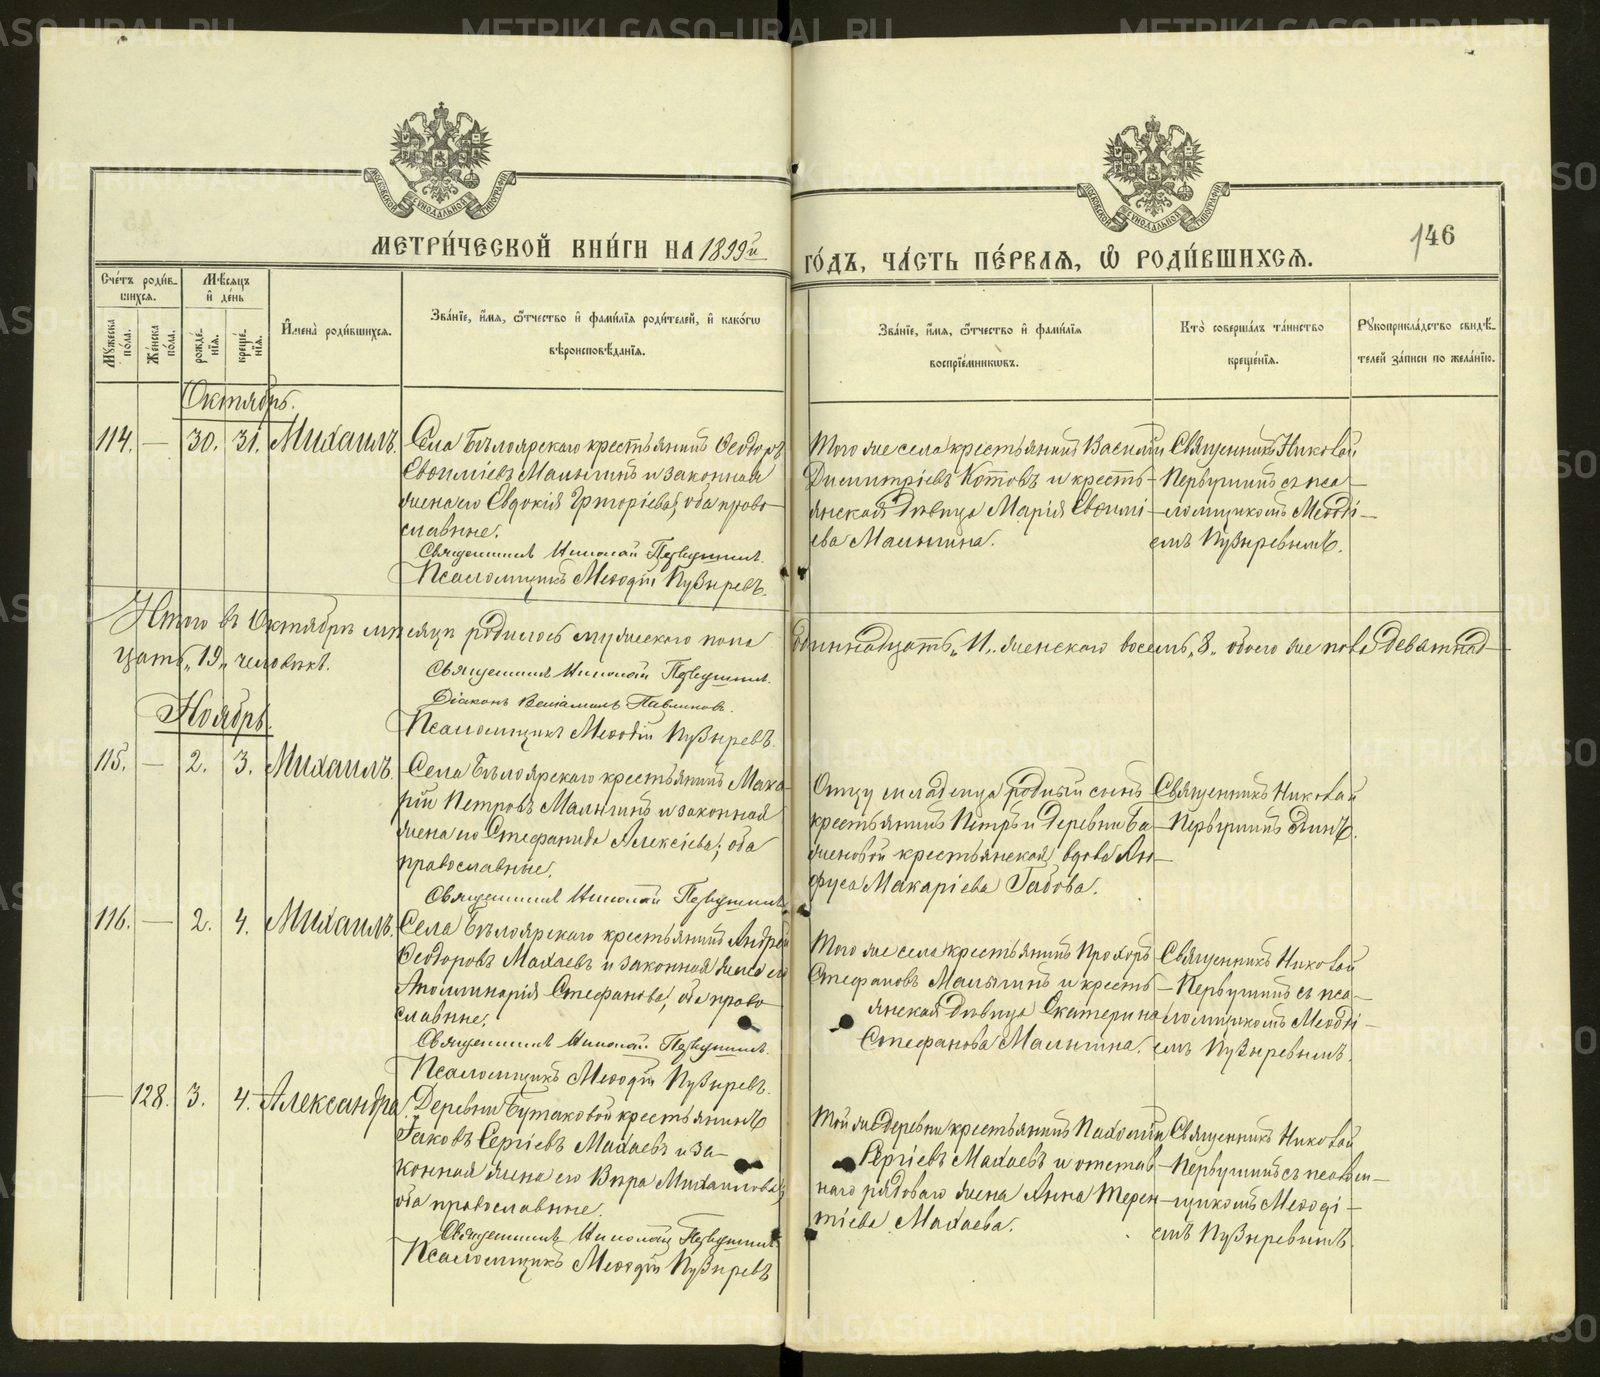 МЕТРИ́ЧЕСКОЙ КНИ́ГИ НА 1899й
ГО́ДЪ, ЧА́СТЬ ПЕ́РВАѦ, Ѡ҆ РОДИ́ВШИХСѦ.
146
Сче́тъ роди́в-
шихсѧ.
Мꙋжеска по́ла.
Же́нска по́ла.
Мѣ́сѧцъ и҆ де́нь
рожде́-
нїѧ.
креще́-
нїѧ.
И҆мена̀ роди́вшихсѧ.
Зва́нїе, и҆́мѧ, ѻ҆́тчество и҆ фами́лїѧ роди́телей, и҆ како́гѡ
вѣроисповѣ́данїѧ.
Зва́нїе, и҆́мѧ, ѻ҆́тчество и҆ фами́лїѧ
воспрїе́мникѡвъ.
Кто̀ соверша́лъ та́инство
креще́нїѧ.
Рꙋкоприкла́дство свидѣ́-
телей за́писи по жела́нїю.
Октябрь.
114. — 30. 31. Михаилъ.
Села Бѣлоярскаго крестьянинъ Ѳеодоръ
Евѳиміевъ Малыгинъ и законная
жена его Евдокія Григоріева; оба право-
славные.
Священникъ Николай Первушинъ.
Псаломщикъ Меѳодій Пузыревъ.
Того же села крестьянинъ Василій
Димитріевъ Котовъ и кресть-
янская дѣвица Марія Евѳимі-
ева Малыгина.
Священникъ Николай
Первушинъ съ пса-
ломщикомъ Меѳоді-
емъ Пузыревымъ.
Итого въ Октябрѣ мѣсяцѣ родилось мужескаго пола одиннадцать „11„ женскаго восемь „8„ обоего же пола девятнад-
цать „19„ человѣкъ.
Священникъ Николай Первушинъ.
Діаконъ Веніаминъ Павлиновъ.
Псаломщикъ Меѳодій Пузыревъ.
Ноябрь.
115. — 2. 3. Михаилъ.
Села Бѣлоярскаго крестьянинъ Мака-
рій Петровъ Малыгинъ и законная
жена его Стефанида Алексіева; оба
православные.
Священникъ Николай Первушинъ
Отцу младенца родный сынъ
крестьянинъ Петръ и деревни Ба-
женовой крестьянская вдова Ан-
фуса Макаріева Габова.
Священникъ Николай
Первушинъ единъ.
116. — 2. 4. Михаилъ.
Села Бѣлоярскаго крестьянинъ Андрей
Ѳеодоровъ Махаевъ и законная жена его
Аполлинарія Стефанова; оба право-
славные.
Священникъ Николай Первушинъ.
Псаломщикъ Меѳодій Пузыревъ.
Того же села крестьянинъ Прохоръ
Стефановъ Малыгинъ и кресть-
янская дѣвица Екатерина
Стефанова Малыгина.
Священникъ Николай
Первушинъ съ пса-
ломщикомъ Меѳоді-
емъ Пузыревымъ.
— 128. 3. 4. Александра
Деревни Бутаковой крестьянинъ
Іаковъ Сергіевъ Махаевъ и за-
конная жена его Вѣра Михаилова;
оба православные.
Священникъ Николай Первушинъ
Псаломщикъ Меѳодій Пузыревъ
Той же деревни крестьянинъ Пахомій
Сергіевъ Махаевъ и отстав-
наго рядоваго жена Анна Терен-
тіева Махаева.
Священникъ Николай
Первушинъ съ псалом-
щикомъ Меѳоді-
емъ Пузыревымъ.